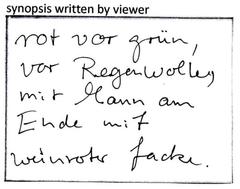 synopsis written by viewer
rot vor grün,
vor Regenwolken,
mit Mann am
Ende mit
weinroter Jacke.